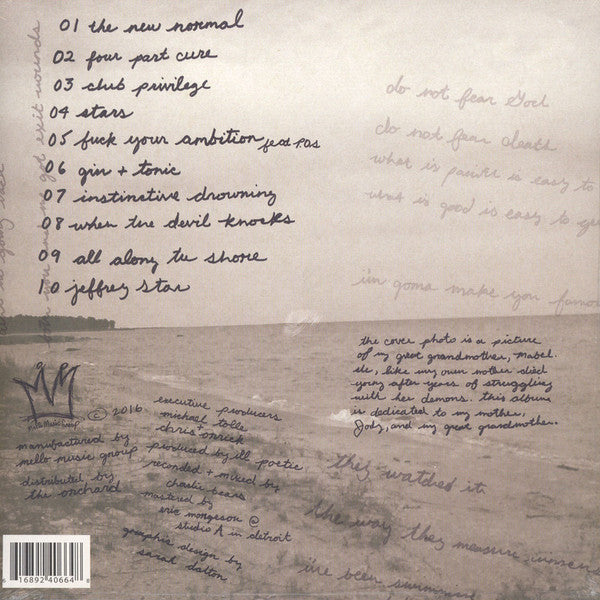 01 the new normal
02 four part cure
03 club privilege
04 stars
05 fuck your ambition feat P.O.S
06 gin + tonic
07 instinctive drowning
08 when the devil knocks
09 all along the shore
10 jeffrey star
exit wounds
do not fear God
do not fear death
what is painful is easy to
what is good is easy to get
i'm gonna make you famous
the cover photo is a picture
of my great grandmother, mabel.
she, like my own mother died
young after years of struggling
with her demons. this album
is dedicated to my mother,
Jody, and my great grandmother.
Mello Music Group
© 2016
manufactured by
mello music group
distributed by
the orchard
executive producers
michael tolle
chris orrick
produced by ill poetic
recorded + mixed by
mastered by
eric morgeson @
studio A in detroit
graphic design by
sarah dalton
they watched it
the way they measure
i've been swimming
6 16892 40664 8